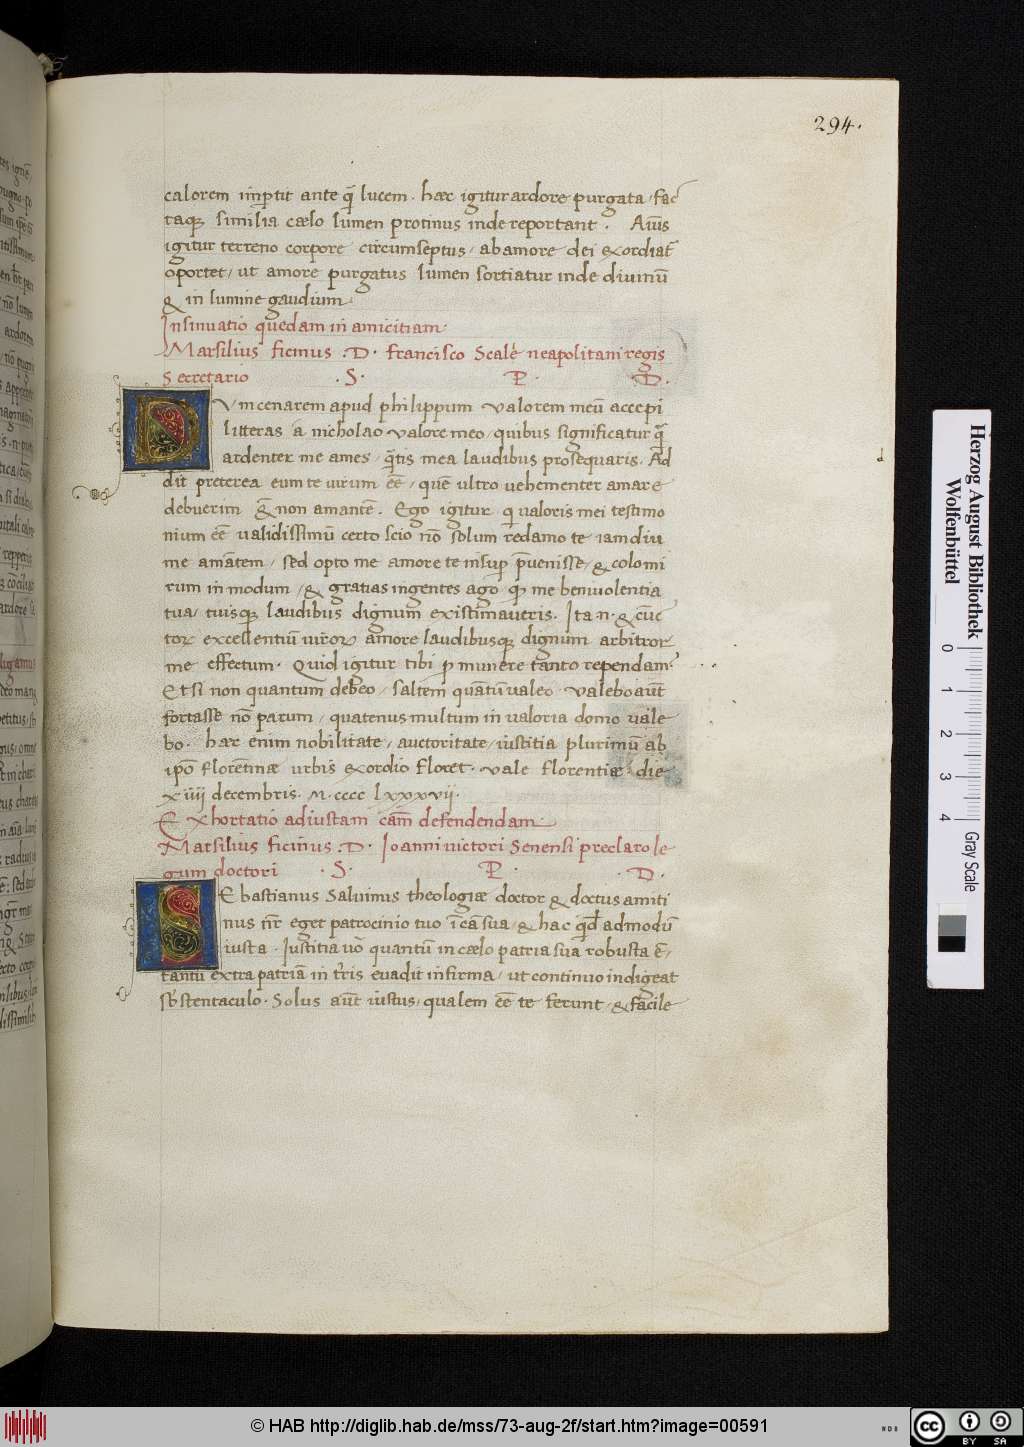 294.
calorem imꝑtit ante q̄ lucem. hæc igitur ardore purgata, fac
taqꝫ similia cælo lumen protinus inde reportant. Aīus
igitur terreno corpore circumseptus, ab amore dei exordiat̄
oportet, ut amore purgatus lumen sortiatur inde diuinū
& in lumine gaudium.
Insinuatio quedam in amicitiam.
Marsilius ficinus .D. francisco Scalē neapolitani regis
Secretario .S. P. D.
Dum cenarem apud philippum Valorem meū accepi
litteras a nicholao Valore meo, quibus significatur q̄
ardenter me ames, q̄tis mea laudibus prosequaris. Ad
dit preterea eum te uirum eē, quē ultro uehementer amare
debuerim & non amantē. Ego igitur qi ualoris mei testimo
nium eē ualidissimū certo scio nō solum redamo te iamdiu
me amātem, sed opto me amore te insuꝑ p̄uenisse, & colo mi
rum in modum, & gratias ingentes ago qꝫ me beniuolentia
tua, tuisqꝫ laudibus dignum existimaueris. Ita.n. & cūc
toꝝ excellentiū uiroꝝ amore laudibusqꝫ dignum arbitror
me effectum. Quid igitur tibi ꝓ munere tanto rependam?
Etsi non quantum debeo, saltem quātū ualeo. Valebo aūt
fortasse nō parum, quatenus multum in ualoria domo uale
bo. hæc enim nobilitate, auctoritate, iustitia plurimū ab
ip̄o florētinæ urbis exordio floret. Vale florentiæ die
xiiii decembris. M.cccc lxxxvii.
Exhortatio ad iustam cām defendendam.
Marsilius ficinus .D. Ioanni uictori Senensi preclaro le
gum doctori .S. P. D.
SEbastianus Saluinus theologiæ doctor & doctus amiti
nus nr̄ eget patrocinio tuo ī cā sua, & hac qd̄ admodū
iusta. Iustitia uo quantū in cælo patria sua robusta ē,
tantū extra patriā in tr̄is euadit infirma, ut continuo indigeat
sbstentaculo. Solus aūt iustus, qualem eē te ferunt, & facile
Herzog August Bibliothek
Wolfenbüttel
0 1 2 3 4
Gray Scale
© HAB http://diglib.hab.de/mss/73-aug-2f/start.htm?image=00591
cc BY SA